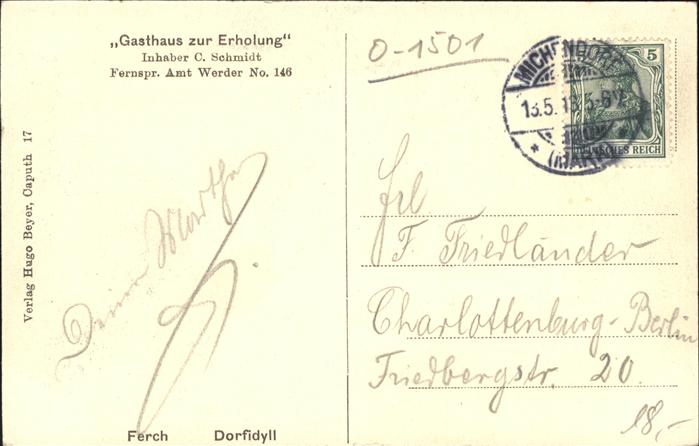 „Gasthaus zur Erholung“
Inhaber C. Schmidt
Fernspr. Amt Werder No. 146
Verlag Hugo Beyer, Caputh 17
Deine Martha
Ferch Dorfidyll
0-1501
MICHENDORF
13.5.13.5-6N.
* (MARK)
5
DEUTSCHES REICH
Frl
F. Friedländer
Charlottenburg-Berlin
Friedbergstr. 20.
18,-